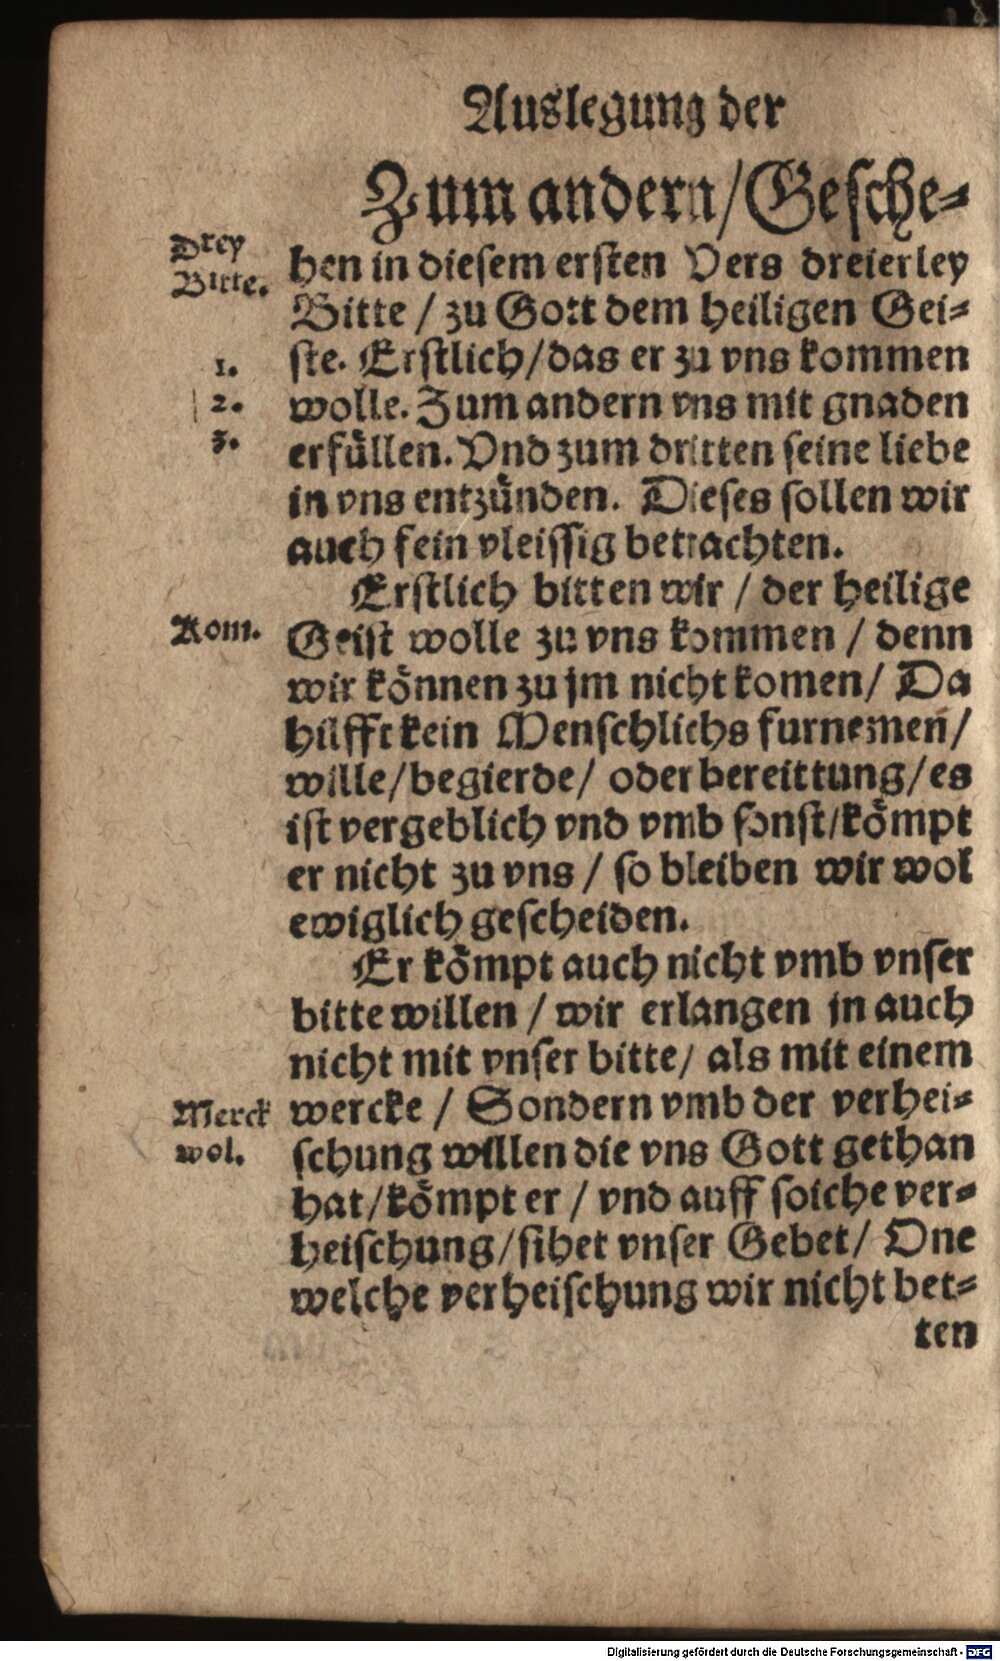 Auslegung der
Zum andern/Gesche-
Drey
Bitte.
hen in diesem ersten Vers dreierley
Bitte / zu Gott dem heiligen Gei-
1.
ste. Erstlich/das er zu vns kommen
2.
wolle. Zum andern vns mit gnaden
3.
erfüllen. Vnd zum dritten seine liebe
in vns entzünden. Dieses sollen wir
auch fein vleissig betrachten.
Erstlich bitten wir / der heilige
Kom.
Geist wolle zu vns kommen / denn
wir können zu jm nicht komen/ Da
hilfft kein Menschlichs furnemen/
wille/begierde/ oder bereittung/es
ist vergeblich vnd vmb sonst/kömpt
er nicht zu vns / so bleiben wir wol
ewiglich gescheiden.
Er kömpt auch nicht vmb vnser
bitte willen / wir erlangen jn auch
nicht mit vnser bitte/ als mit einem
Merck
wol.
wercke / Sondern vmb der verhei-
schung willen die vns Gott gethan
hat/kömpt er / vnd auff solche ver-
heischung/sihet vnser Gebet/ One
welche verheischung wir nicht bet-
ten
Digitalisierung gefördert durch die Deutsche Forschungsgemeinschaft - DFG